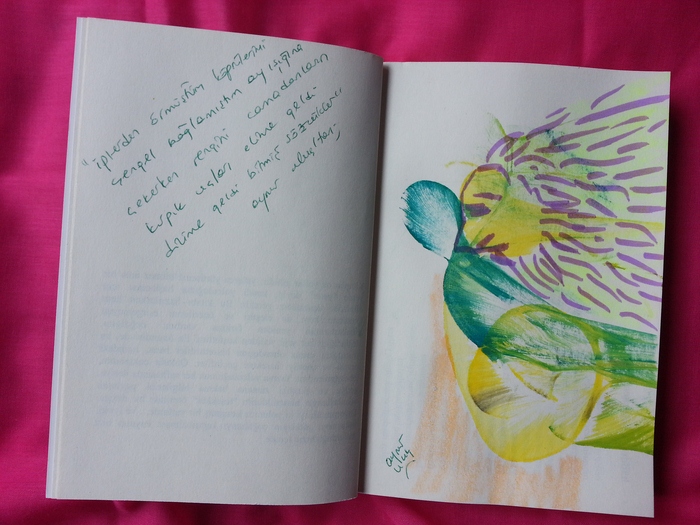 "iplerden örmüştüm köprülerini
çengel bağlamıştım ay ışığına
çekerken rengini canadanların
kirpik uçları elime geldi
dizime geldi bitmiş sözcükleri
aynur uluç
aynur
uluç